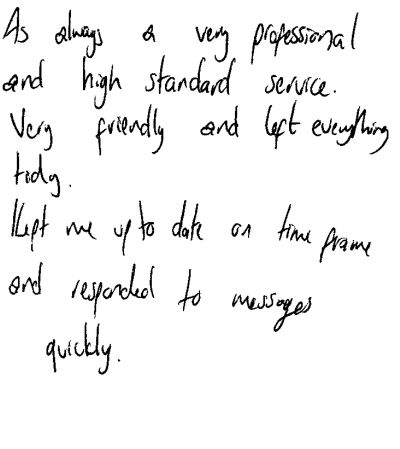 As always a very professional
and high standard service.
Very friendly and left everything
tidy.
Kept me up to date on time frame
and responded to messages
quickly.